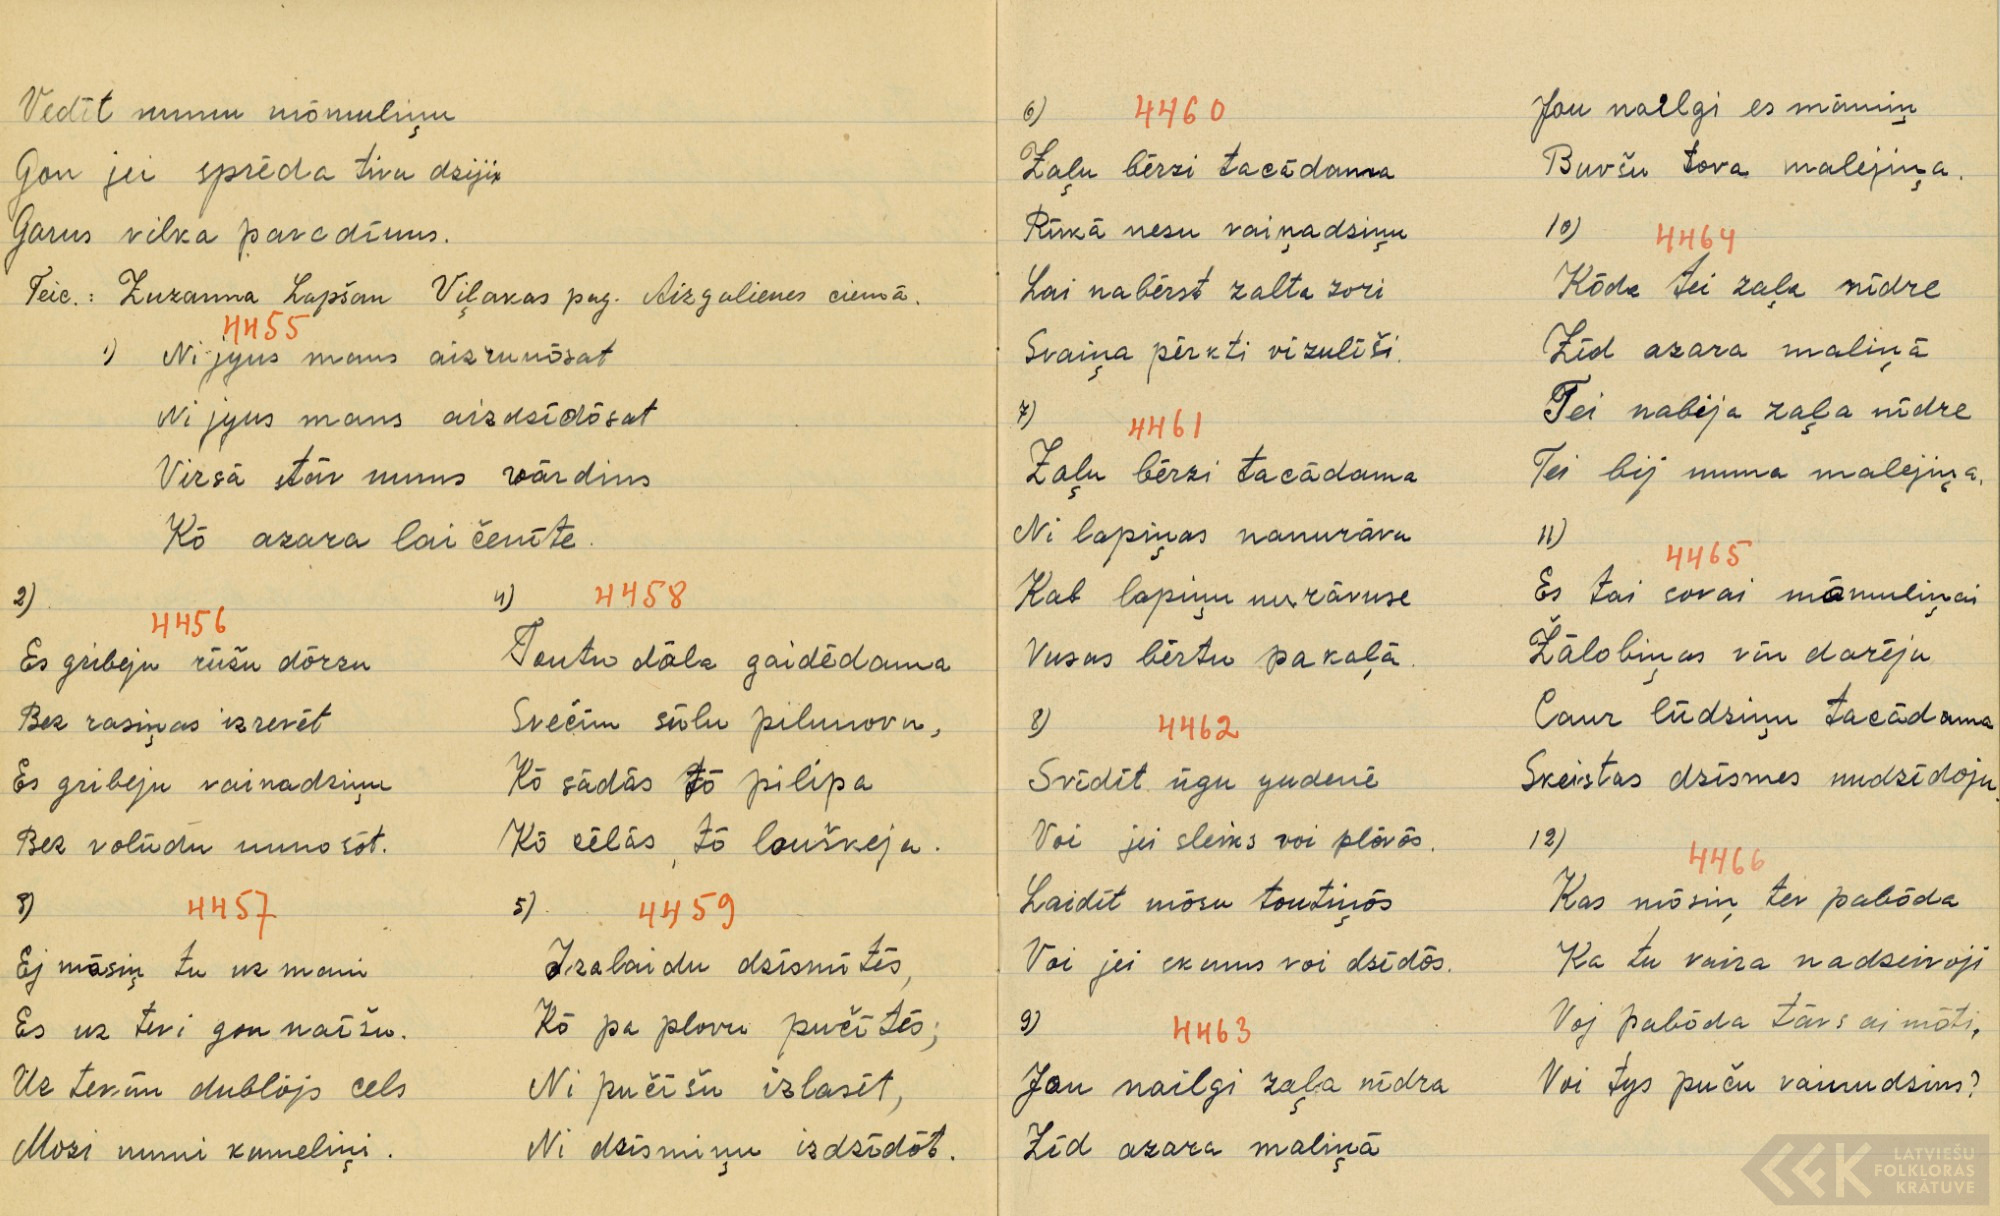 Vedīt munu mōmuliņu
Gon jei sprēda tivu dziji
Garus vilka pavedīnus.
Teic.: Zuzanna Lapšan Viļakas pag. Aizgalienes ciemā.
4455
1) Ni jyus mans aizrunōsat
Ni jyus mans aizdzīdōsat
Virsā stāv muns vārdins
Kō azara laičenīte.
2)
4456
Es gribeju rūžu dōrzu
Bez rasiņas izrevēt
Es gribeju vainadziņu
Bez volūdu nunosōt.
3) 4457
Ej māsiņ tu uz mani
Es uz tevi gon naīšu.
Uz tevim dubļōjs ceļs
Mozi muni kumeliņi.
4) 4458
Toutu dāla gaidēdama
Svečim sūlu pilunovu,
Kō sādās tō pilipa
Kō cēlās, tō louškeja.
5) 4459
Izalaidu dzīsmītēs,
Kō pa plovu pučītēs;
Ni pučīšu izlasēt,
Ni dzīsmiņu izdzīdōt.
6) 4460
Zaļu bērzi tacādama
Rūkā nesu vaiņadziņu
Lai nabērst zalta zori
Svaiņa pērkti vizulīši.
7)
4461
Zaļu bērzi tacādama
Ni lapiņas nanurāvu
Kab lapiņu nurāvuse
Vusas bērtu pakaļā.
8) 4462
Svīdīt ūgu yudenē
Voi jei sleiks voi plōvōs.
Laidīt mōsu toutiņōs
Voi jei skanus voi dzīdōs.
9) 4463
Jau nailgi zaļa nīdra
Zīd azara maliņā
Jau nailgi es māmiņ
Buvšu tova malejiņa.
10)
4464
Kōda tei zaļa nīdre
Zīd azara maliņā
Tei nabēja zaļa nīdre
Tei bij muna malejiņa.
11)
4465
Es tai sovai mōmuliņai
Žālobiņas vin darēju
Caur lūdziņu tacādama
Skeistas dzīsmes nudzīdoju.
12)
4466
Kas mōsiņ tev pabōda
Ka tu vaira nadzeivoji
Voj pabōda tāvs ai mōti,
Voi tys puču vainudzins?
LATVIEŠU
FOLKLORAS
KRĀTUVE